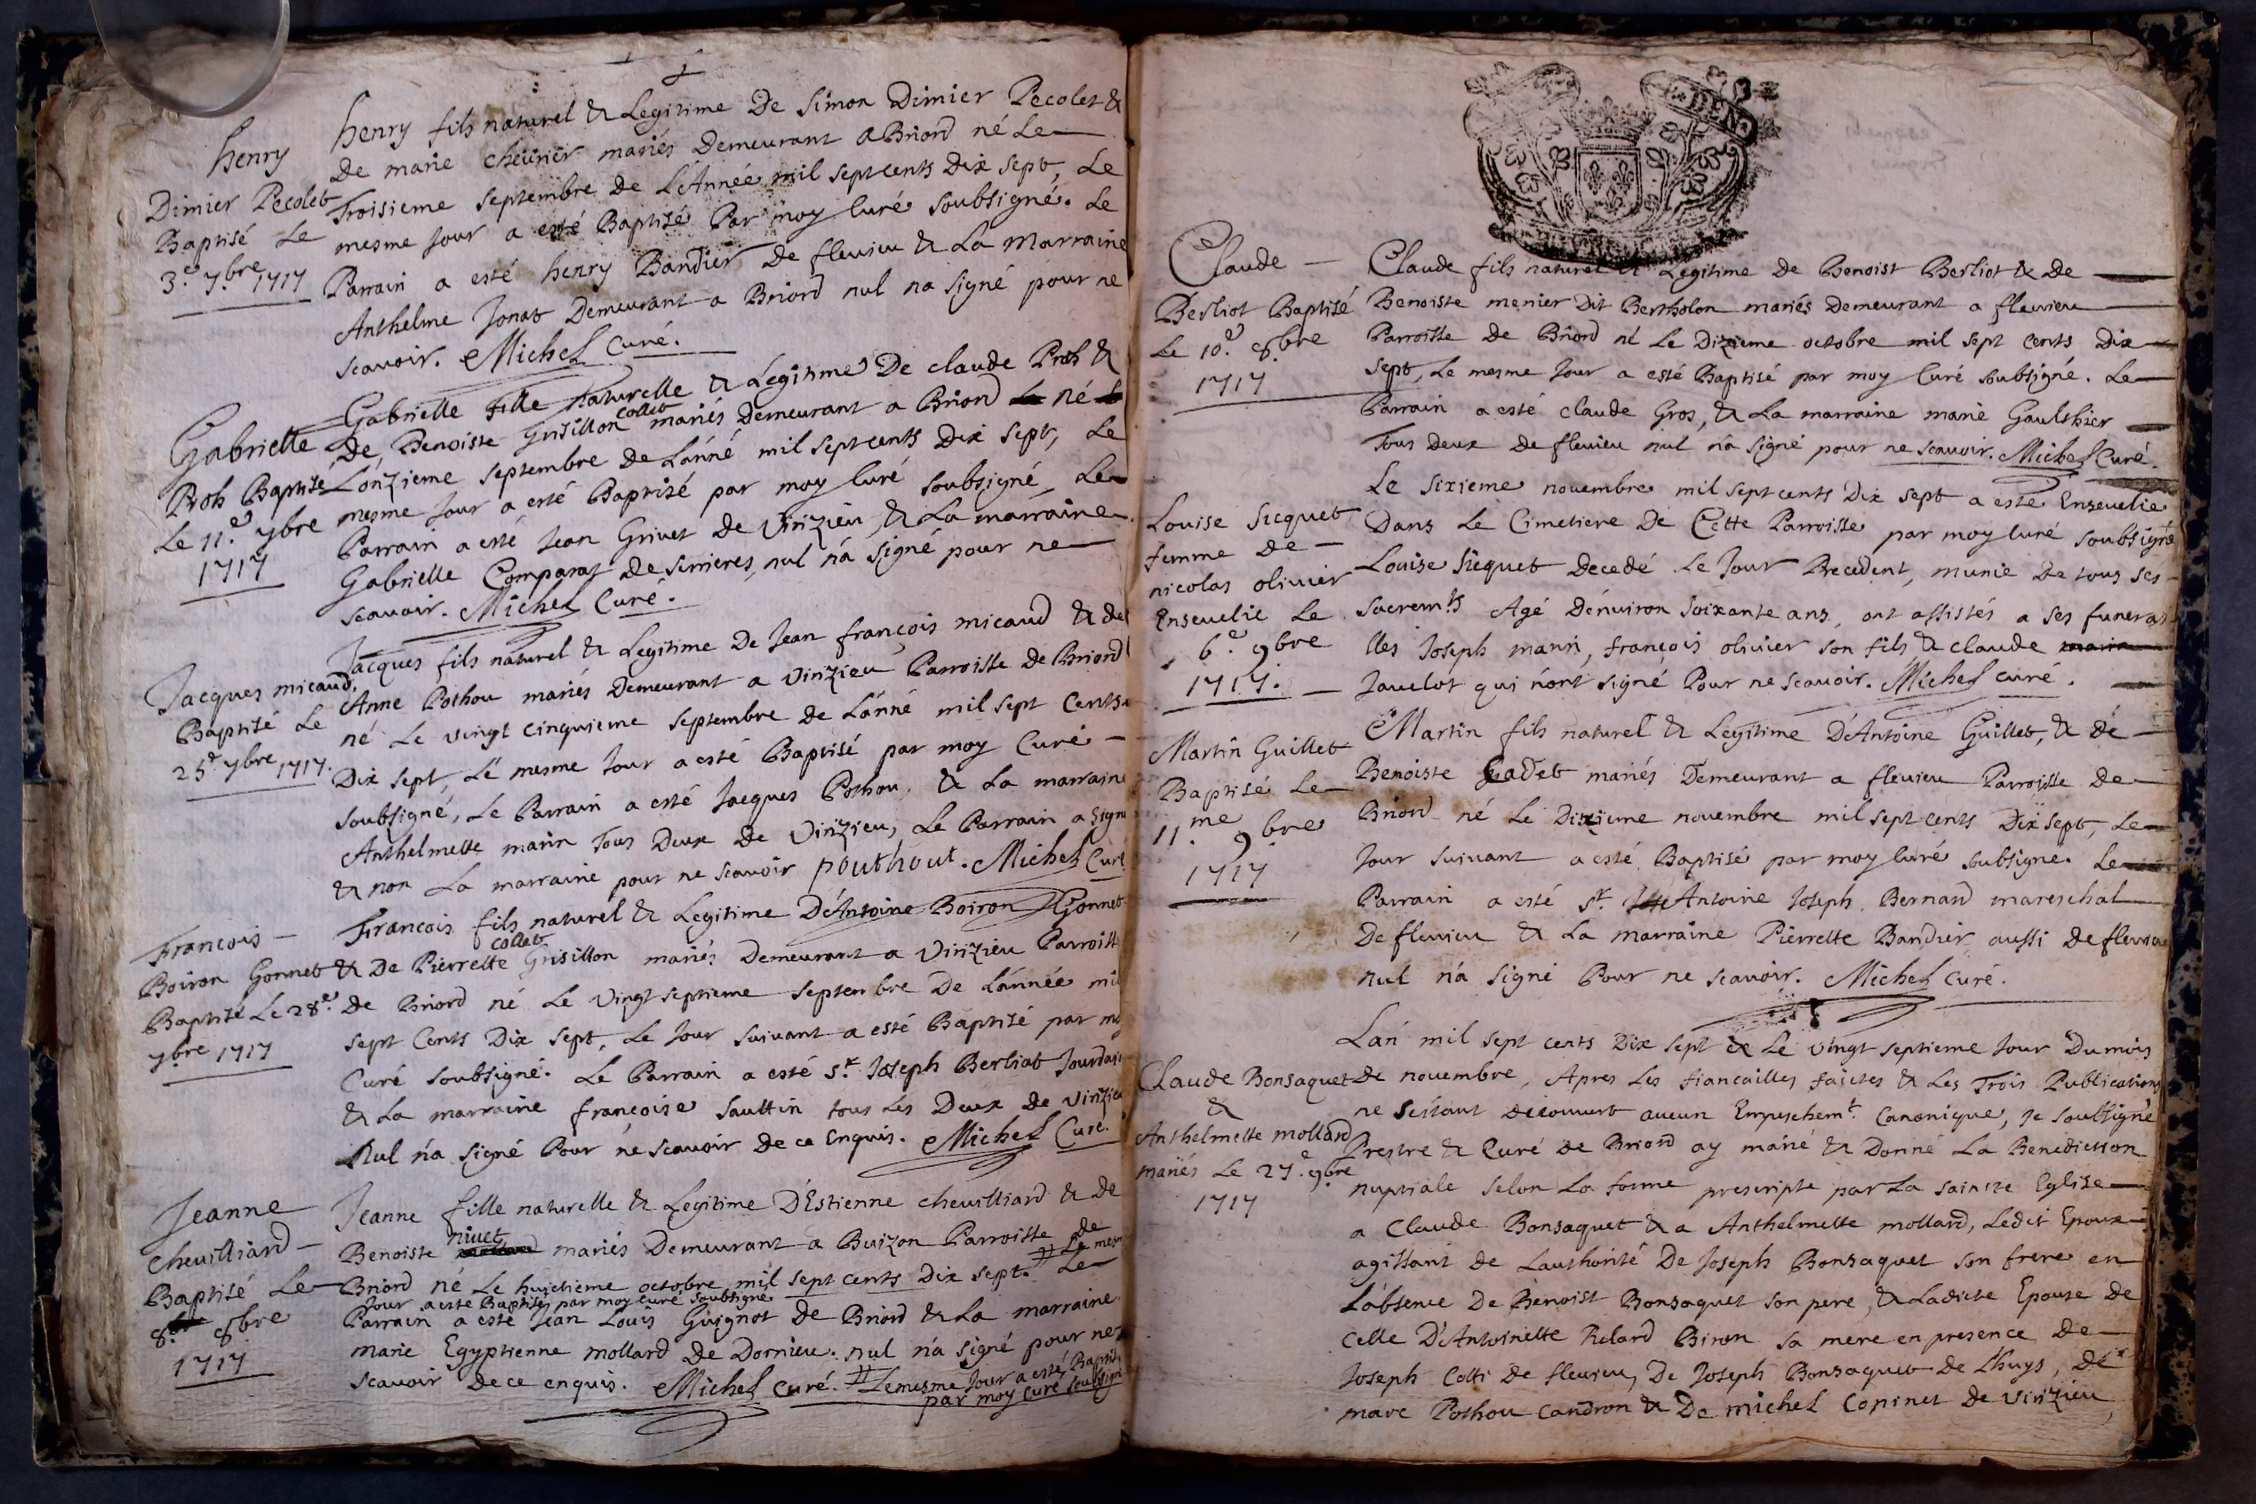 henry
Dimier Pecolet
Baptisé Le
3.e 7bre 1717
henry fils naturel & Legitime De Simon Dimier Pecolet &
De marie cheürier mariés Demeurant a Briord né Le
Troisieme septembre de L'Année mil sept cents Dix sept, Le
mesme Jour a esté Baptisé Par moy Curé soubsigné. Le
Parrain a esté henry Bandier De flevieu & La Marraine
Anthelme Jonat Demeurant a Briord nul na signé pour ne
scavoir. Michel Curé.
Gabrielle
Proh Baptisé
Le 11.e 7bre
1717
Gabrielle fille naturelle & Legitime De claude Proh &
collet
De Benoiste Grisillon mariés Demeurant a Briord né
L'onzieme septembre de L'anné mil sept cents Dix sept, Le
mesme Jour a esté Baptisé par moy Curé soubsigné, Le
Parrain a esté Jean Grivet de Virizieu, & La marraine
Gabrielle Comparat de serrieres, nul n'a signé pour ne
scavoir. Michel Curé.
Jacques micaud
Baptisé Le
25e 7bre 1717.
Jacques fils naturel & Legitime De Jean françois micaud & de
Anne Pothou mariés Demeurant a Virizieu Parroisse de Briord
né Le vingt cinquieme septembre de L'anné mil sept Cents
Dix sept, Le mesme Jour a esté Baptisé par moy Curé
soubsigné, Le Parrain a esté Jacques Pothou, & La marraine
Anthelmette marin Tous Deux de Virizieu, Le Parrain a signé
& non La marraine pour ne scavoir pouthout. Michel Curé
Francois
Boiron Gonnet
Baptisé Le 28.e
7bre 1717
Francois fils naturel & Legitime D'Antoine Boiron Gonnet
collet
& De Pierrette Grisillon mariés Demeurant a Virizieu Parroisse
de Briord né Le vingt septieme septembre De L'année mil
sept Cents Dix sept, Le Jour suivant a esté Baptisé par moy
Curé soubsigné. Le Parrain a esté sr. Joseph Berliat Jourdain
& La marraine françoise Sauttin tous Les Deux de virizieu
Nul n'a signé Pour ne scavoir de ce Enquis. Michel Curé.
Jeanne
chevilliard
Baptisé Le
8. 8bre
1717
Jeanne fille naturelle & Legitime D'Estienne chevilliard & de
nivet
Benoiste mollard mariés Demeurant a Buizon Parroisse de
Briord né Le huictieme octobre mil sept cents Dix sept. # Le mesme
Jour a esté Baptisé par moy Curé soubsigné Le
Parrain a esté Jean Louis Guignot de Briord & La marraine
marie Egyptienne mollard de Dornieu. nul n'a signé pour ne
scavoir de ce enquis. Michel Curé. # Le mesme Jour a esté Baptisé
par moy Curé soubsigné
DE GEN
Claude
Berliot Baptisé
Le 10.e 8.bre
1717
Claude fils naturel & Legitime de Benoist Berliot & de
Benoiste menier Dit Bertholon mariés Demeurant a flevieu
Parroisse de Briord né Le Dixieme octobre mil sept cents Dix
sept, Le mesme Jour a esté Baptisé par moy Curé soubsigné. Le
Parrain a esté claude Gros, & La marraine marie Gaulthier
Tous Deux de flevieu nul n'a signé pour ne scavoir. Michel Curé.
Louise sicquet
femme de
nicolas olivier
Ensevelie Le
6.e 9bre
1717.
Le sixieme novembre mil sept cents Dix sept a esté Ensevelie
Dans Le Cimetiere De Cette Parroisse par moy Curé soubsigné
Louise sicquet Decedé Le Jour Precedent, munie De tous ses
sacremts Agé D'environ soixante ans, ont assistés a ses funerai
lles Joseph marin, françois olivier son fils & claude marin
Javelot qui n'ont signé Pour ne scavoir. Michel curé.
Martin Guillet
Baptisé Le
11.me 9bre
1717
Martin fils naturel & Legitime D'Antoine Guillet, & de
Benoiste Gadet mariés Demeurant a flevieu Parroisse de
Briord né Le Dixieme novembre mil sept cents Dix sept, Le
Jour suivant a esté Baptisé par moy Curé soubsigné. Le
Parrain a esté sr. Antoine Joseph Bernard mareschal
De flevieu & La marraine Pierrette Bandier aussi de flevieu
nul n'a signé Pour ne scavoir. Michel Curé.
Claude Bonsaquet
&
Anthelmette mollard
mariés Le 27.e 9bre
1717
L'an mil sept cents Dix sept & Le vingt septieme Jour Du mois
de novembre, Apres Les fiancailles faictes & Les Trois Publications
ne s'estant découvert aucun Empeschemt. Canonique, Je soubsigné
Prestre & Curé de Briord ay marié & Donné La Benediction
nuptiale selon La forme prescripte par La saincte Eglise
a Claude Bonsaquet & a Anthelmette mollard, Ledit Epoux
agissant de L'authorité De Joseph Bonsaquet son frere en
L'absence De Benoist Bonsaquet son pere, & Ladicte Epouse de
celle D'Antoinette Relard Biron sa mere en presence de
Joseph Cotti de flevieu, De Joseph Bonsaquet de L'huys, de
marc Pothou candron & De michel Copinet de Virizieu,